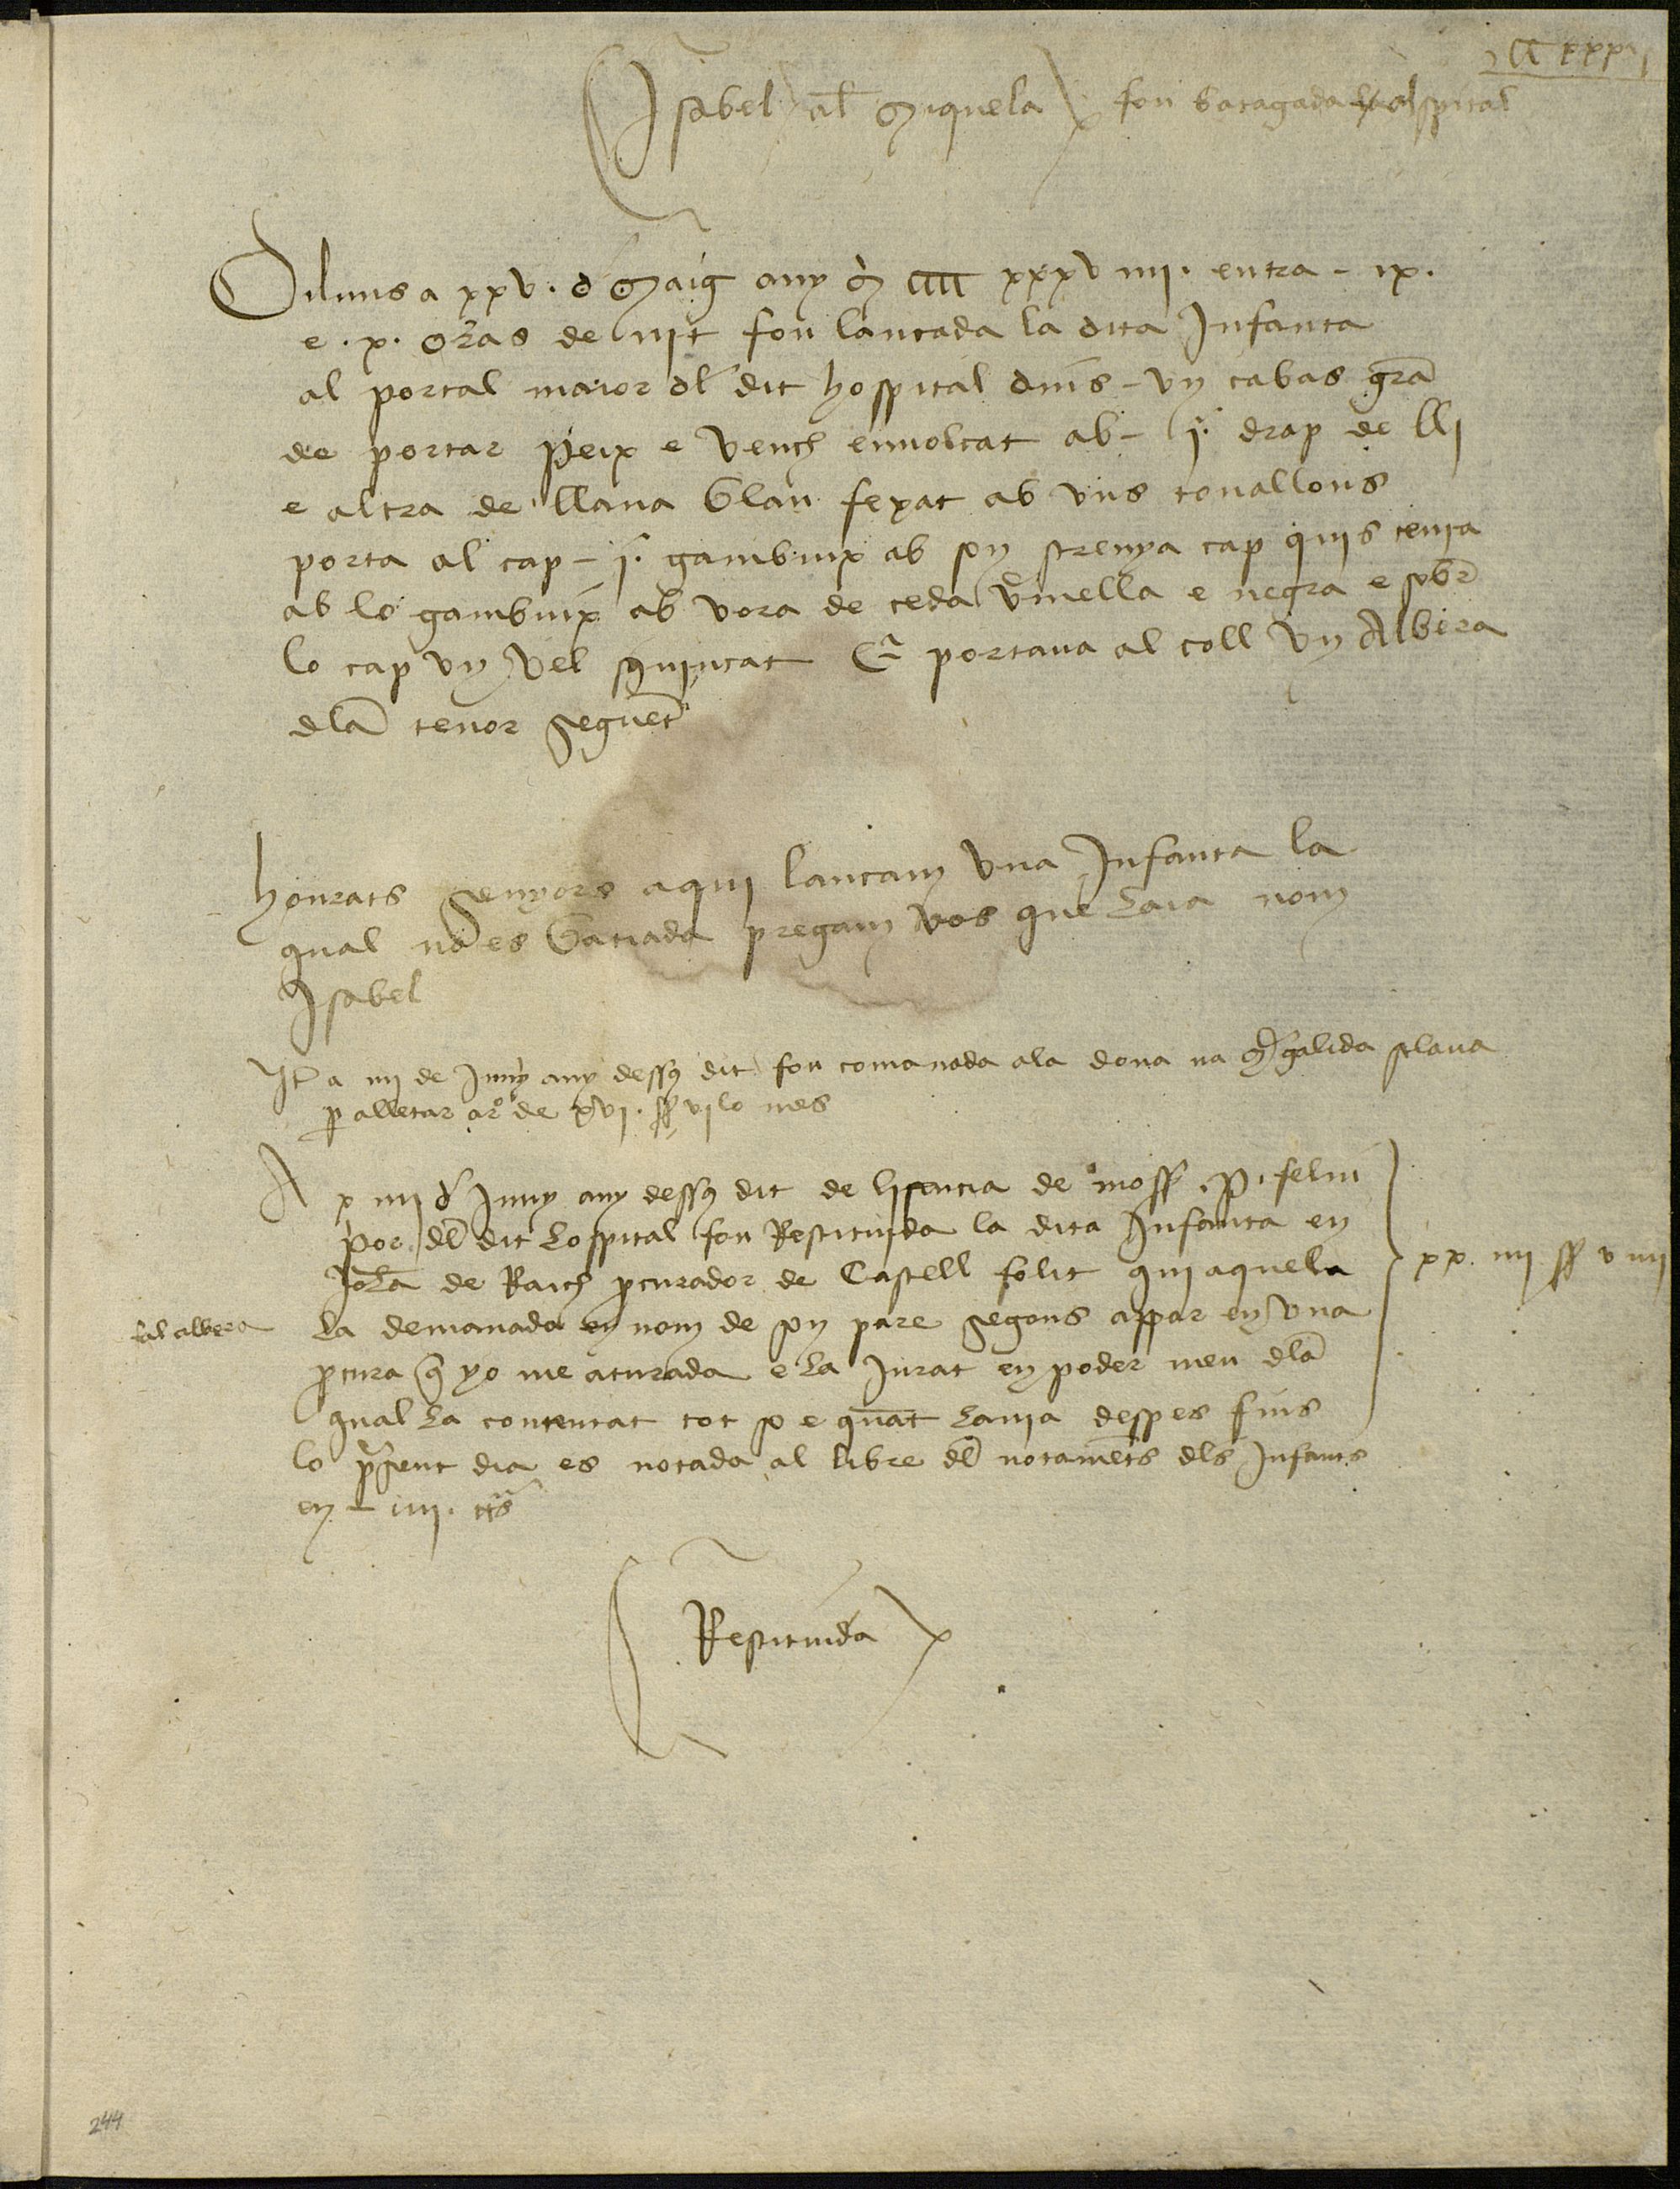 Isabel al Miquela fou bategada al spital
Diluns a xxv. d Maig any M CCCC xxxviiii. entra - ix.
e . x . oras de nit fou lançada la dita Infanta
al portal maior dl dit hospital dins - vn cabas gran
de portar peix e vench enuolcat ab - j. drap de lli
e altra de llana blau fexat ab vns touallons
porta al cap - j. gambuix ab son strenya cap quis tenia
ab lo gambuix ab vora de ceda vmella e negra e sobre
lo cap vn vel squinçat Et portaua al coll vn Albera
dla tenor seguent
honrats senyors aqui lançam vna Infanta la
qual no es batiada pregam vos que haia nom
Isabel
It a iiii de Juny any dessus dit fou comanada ala dona na Mgalida sclaua
p alletar a ro de xvi . ss vi lo mes
A xiiii d Juny any dessus dit de lisencia de moss . P . feliu
por dl dit hospital fou Restituida la dita Infanta en
Joha de Raich pcurador de Castell follit qui aquela
ha demanada en nom de son pare segons appar en vna
pcura q yo me aturada e ha Jurat en poder meu dla
qual ha contentat tot so e quant hauia despes fins
lo present dia es notada al libre dl notaments dls Infants
en - iiii . ctes
xx. iiii ss v iiii
fal albera
Restituida
244